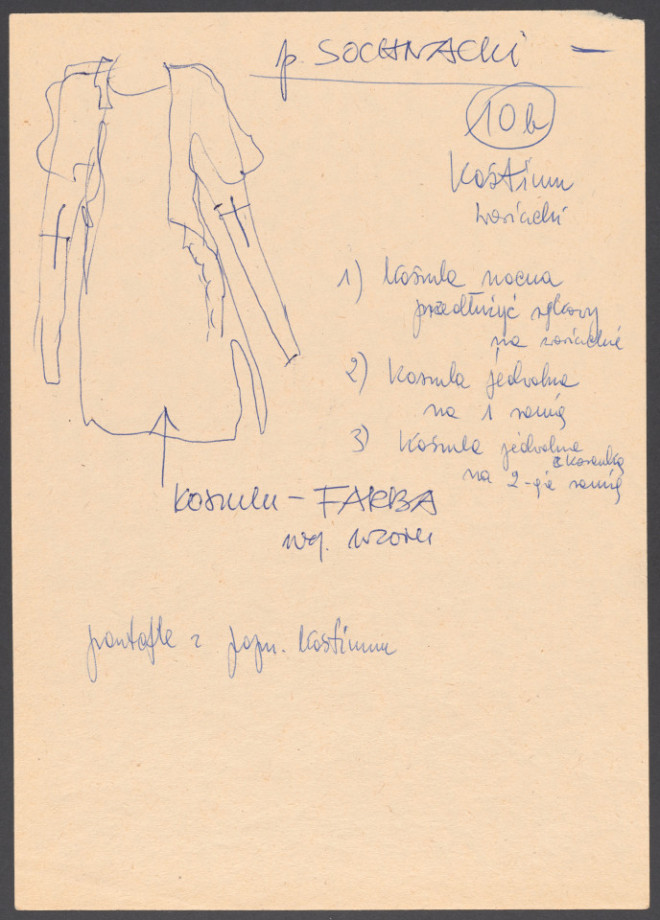 p. SOCHNACKI —
10b
Kostium
wariacki
1) Koszula nocna
przedłużyć rękawy
na wariackie
2) Koszula jedwabna
na 1 ramię
3) Koszula jedwabna
z koronką
na 2-gie ramię
Koszula – FARBA
wg. wzoru
pantofle z pop. kostiumu